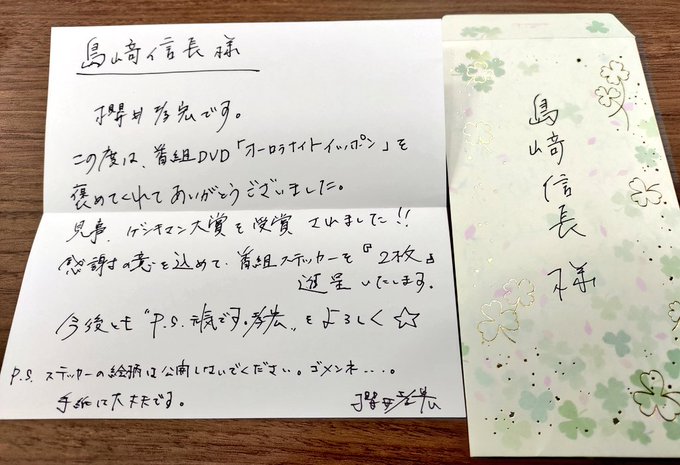 島﨑信長様
櫻井孝宏です。
この度は、番組DVD「オーロラナイトイッポン」を
褒めてくれてありがとうございました。
見事、ゲシキマン大賞を受賞されました!!
感謝の意を込めて、番組ステッカーを『2枚』
進呈いたします。
今後とも“P.S.元気です。孝宏„をよろしく☆
P.S. ステッカーの絵柄は公開しないでください。ゴメンネ・・・。
手紙は大丈夫です。
櫻井孝宏
島﨑信長様